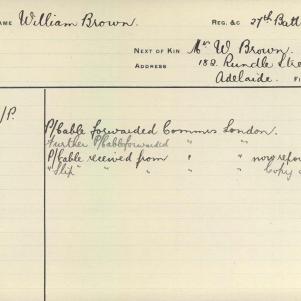 NAME William Brown. REG. &C 27th Batt
NEXT OF KIN Mr W Brown.
ADDRESS 182 Rundle Stre
Adelaide.
/P.
P/Cable forwarded Commrs London.
Further P/Cable forwarded " "
P/Cable received from " " now repo
"Slip" " " " Copy